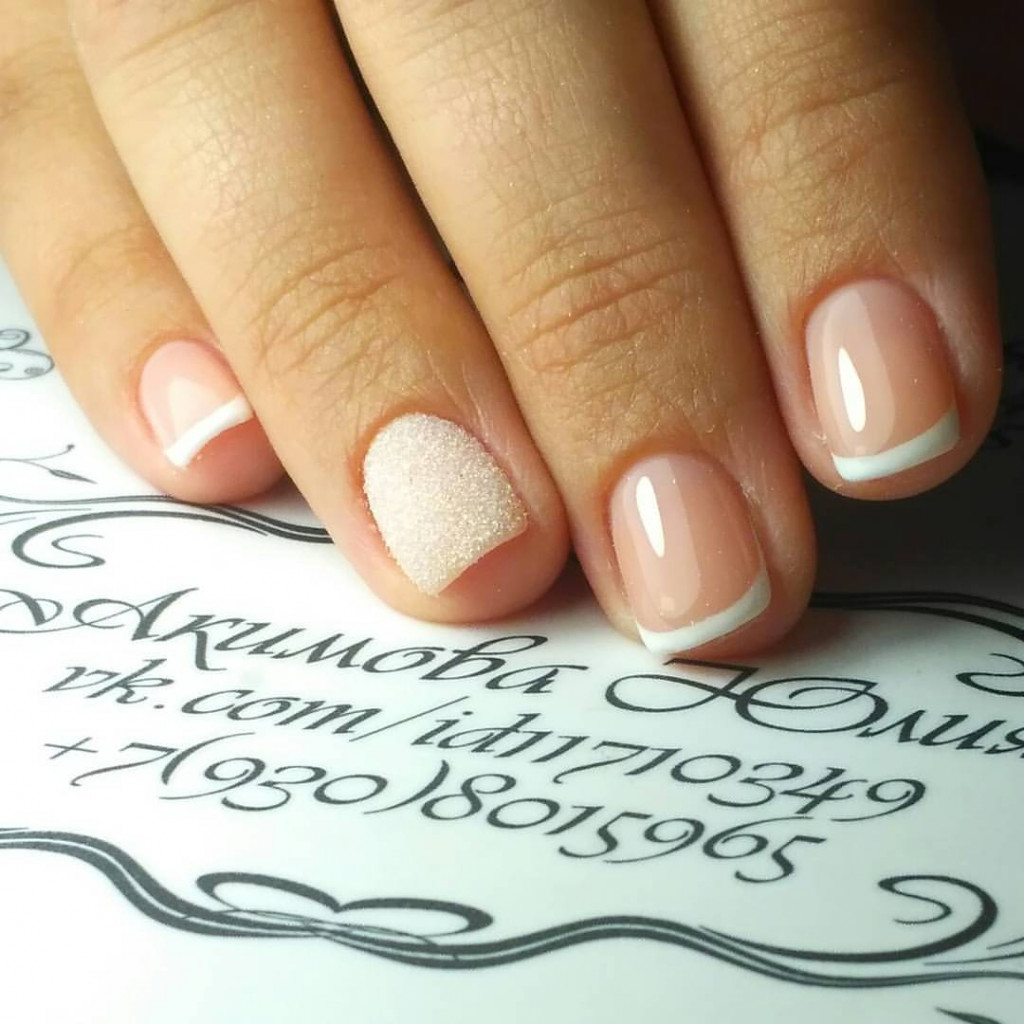 Акимова Юлия
vk.com/id11710349
+7(930)8015965